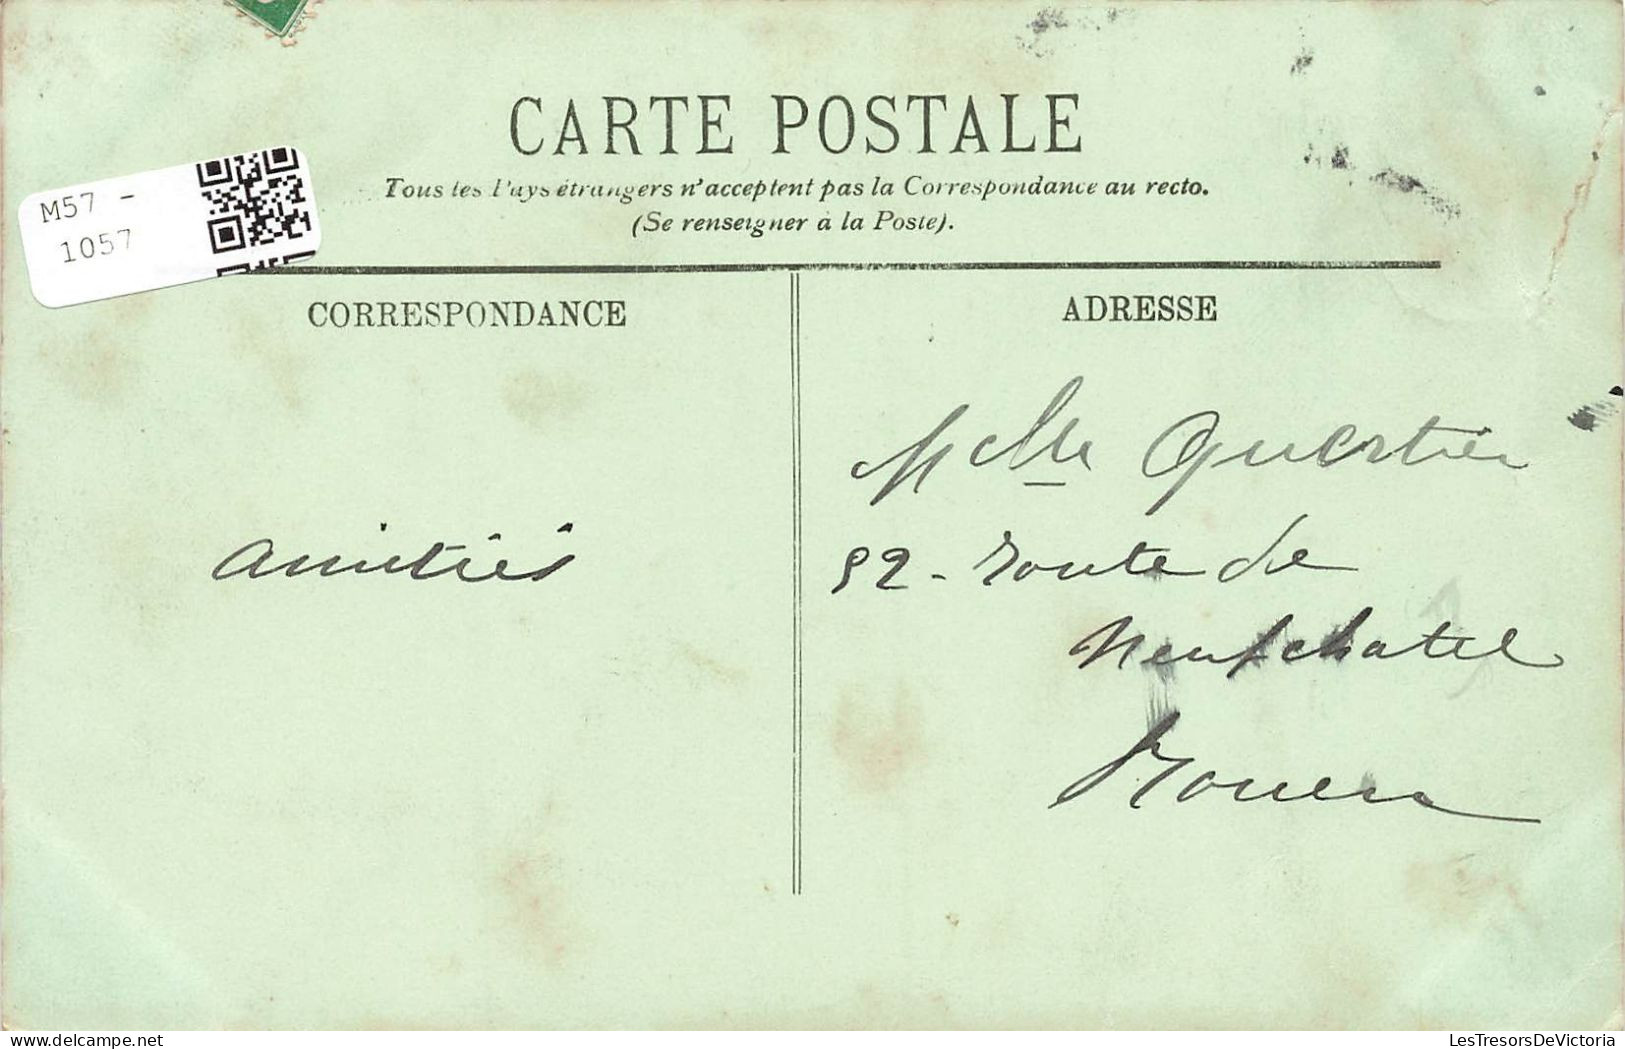 CARTE POSTALE
Tous les Pays étrangers n'acceptent pas la Correspondance au recto.
(Se renseigner à la Poste).
M57 -
1057
CORRESPONDANCE
ADRESSE
amitiés
Melle Quertier
92 - route de
Neufchatel
Rouen
LesTresorsDeVictoria